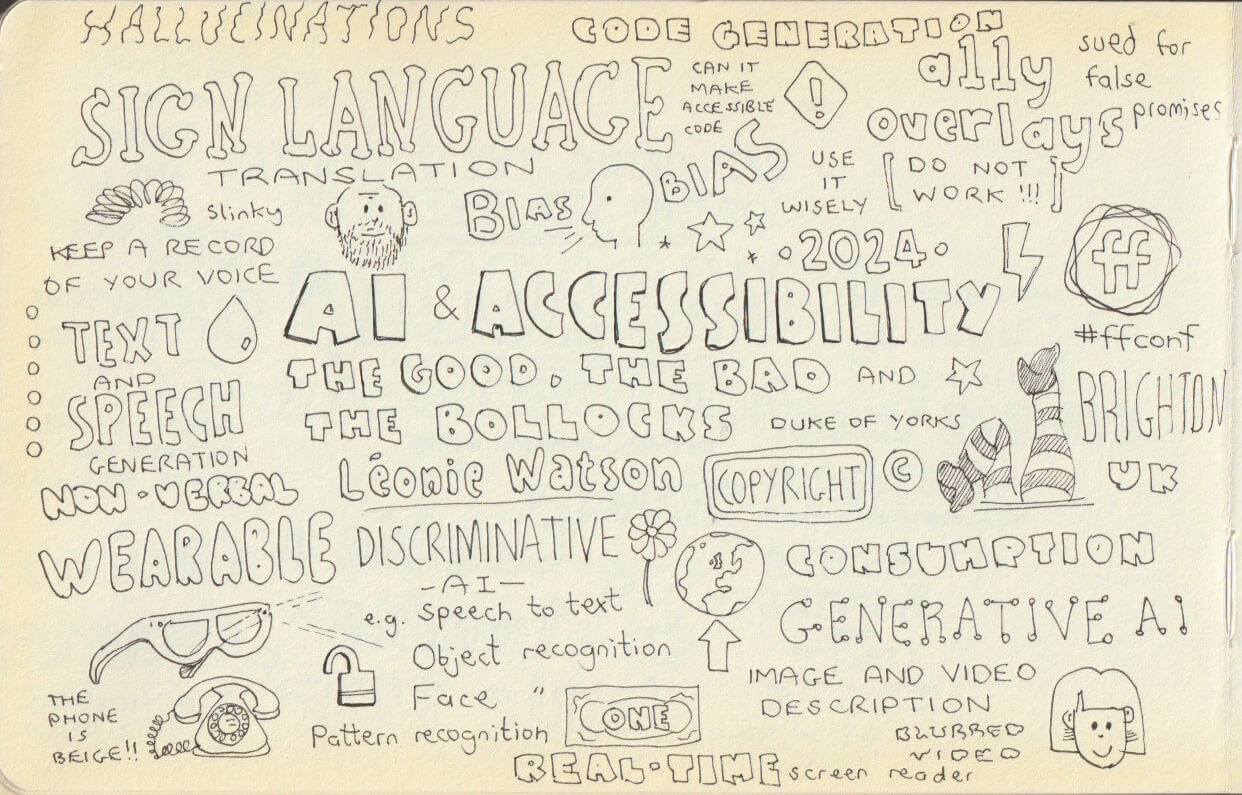 HALLUCINATIONS
CODE GENERATION
a11y
overlays
sued for
false
promises
SIGN LANGUAGE
TRANSLATION
CAN IT
MAKE
ACCESSIBLE
CODE
!
BIAS
BIAS
USE
IT
WISELY
[DO NOT
WORK!!!]
slinky
KEEP A RECORD
OF YOUR VOICE
·2024·
ff
#ffconf
AI & ACCESSIBILITY
THE GOOD, THE BAD AND
THE BOLLOCKS
TEXT
AND
SPEECH
GENERATION
NON-VERBAL
DUKE OF YORKS
BRIGHTON
UK
Léonie Watson
COPYRIGHT ©
WEARABLE
DISCRIMINATIVE
-AI-
e.g. speech to text
Object recognition
Face "
Pattern recognition
CONSUMPTION
GENERATIVE AI
IMAGE AND VIDEO
DESCRIPTION
BLURRED
VIDEO
THE
PHONE
IS
BEIGE!!
ONE
REAL-TIME screen reader